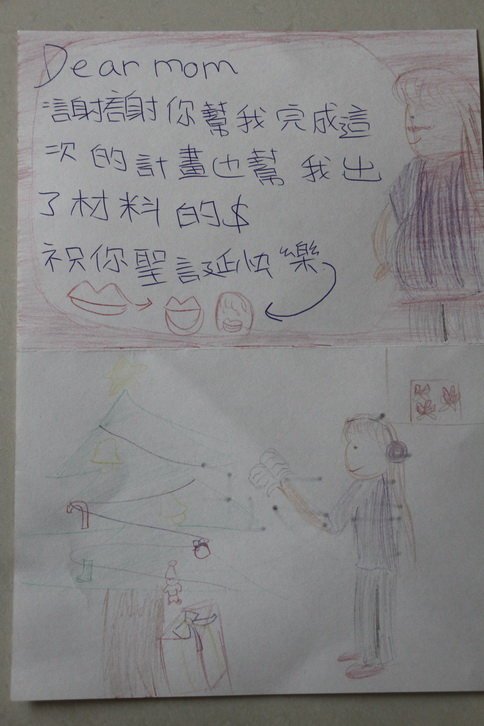 Dear mom
謝謝你幫我完成這
次的計畫也幫我出
了材料的$
祝你聖誕快樂